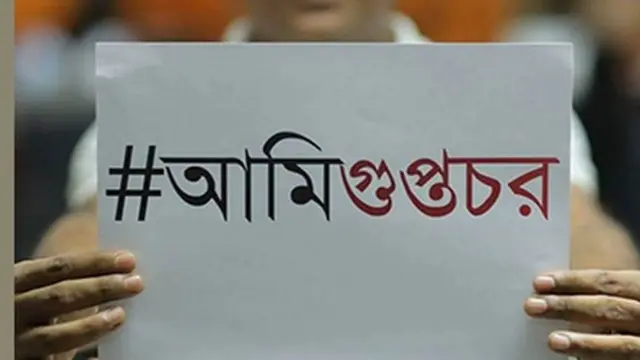 #আমিগুপ্তচর